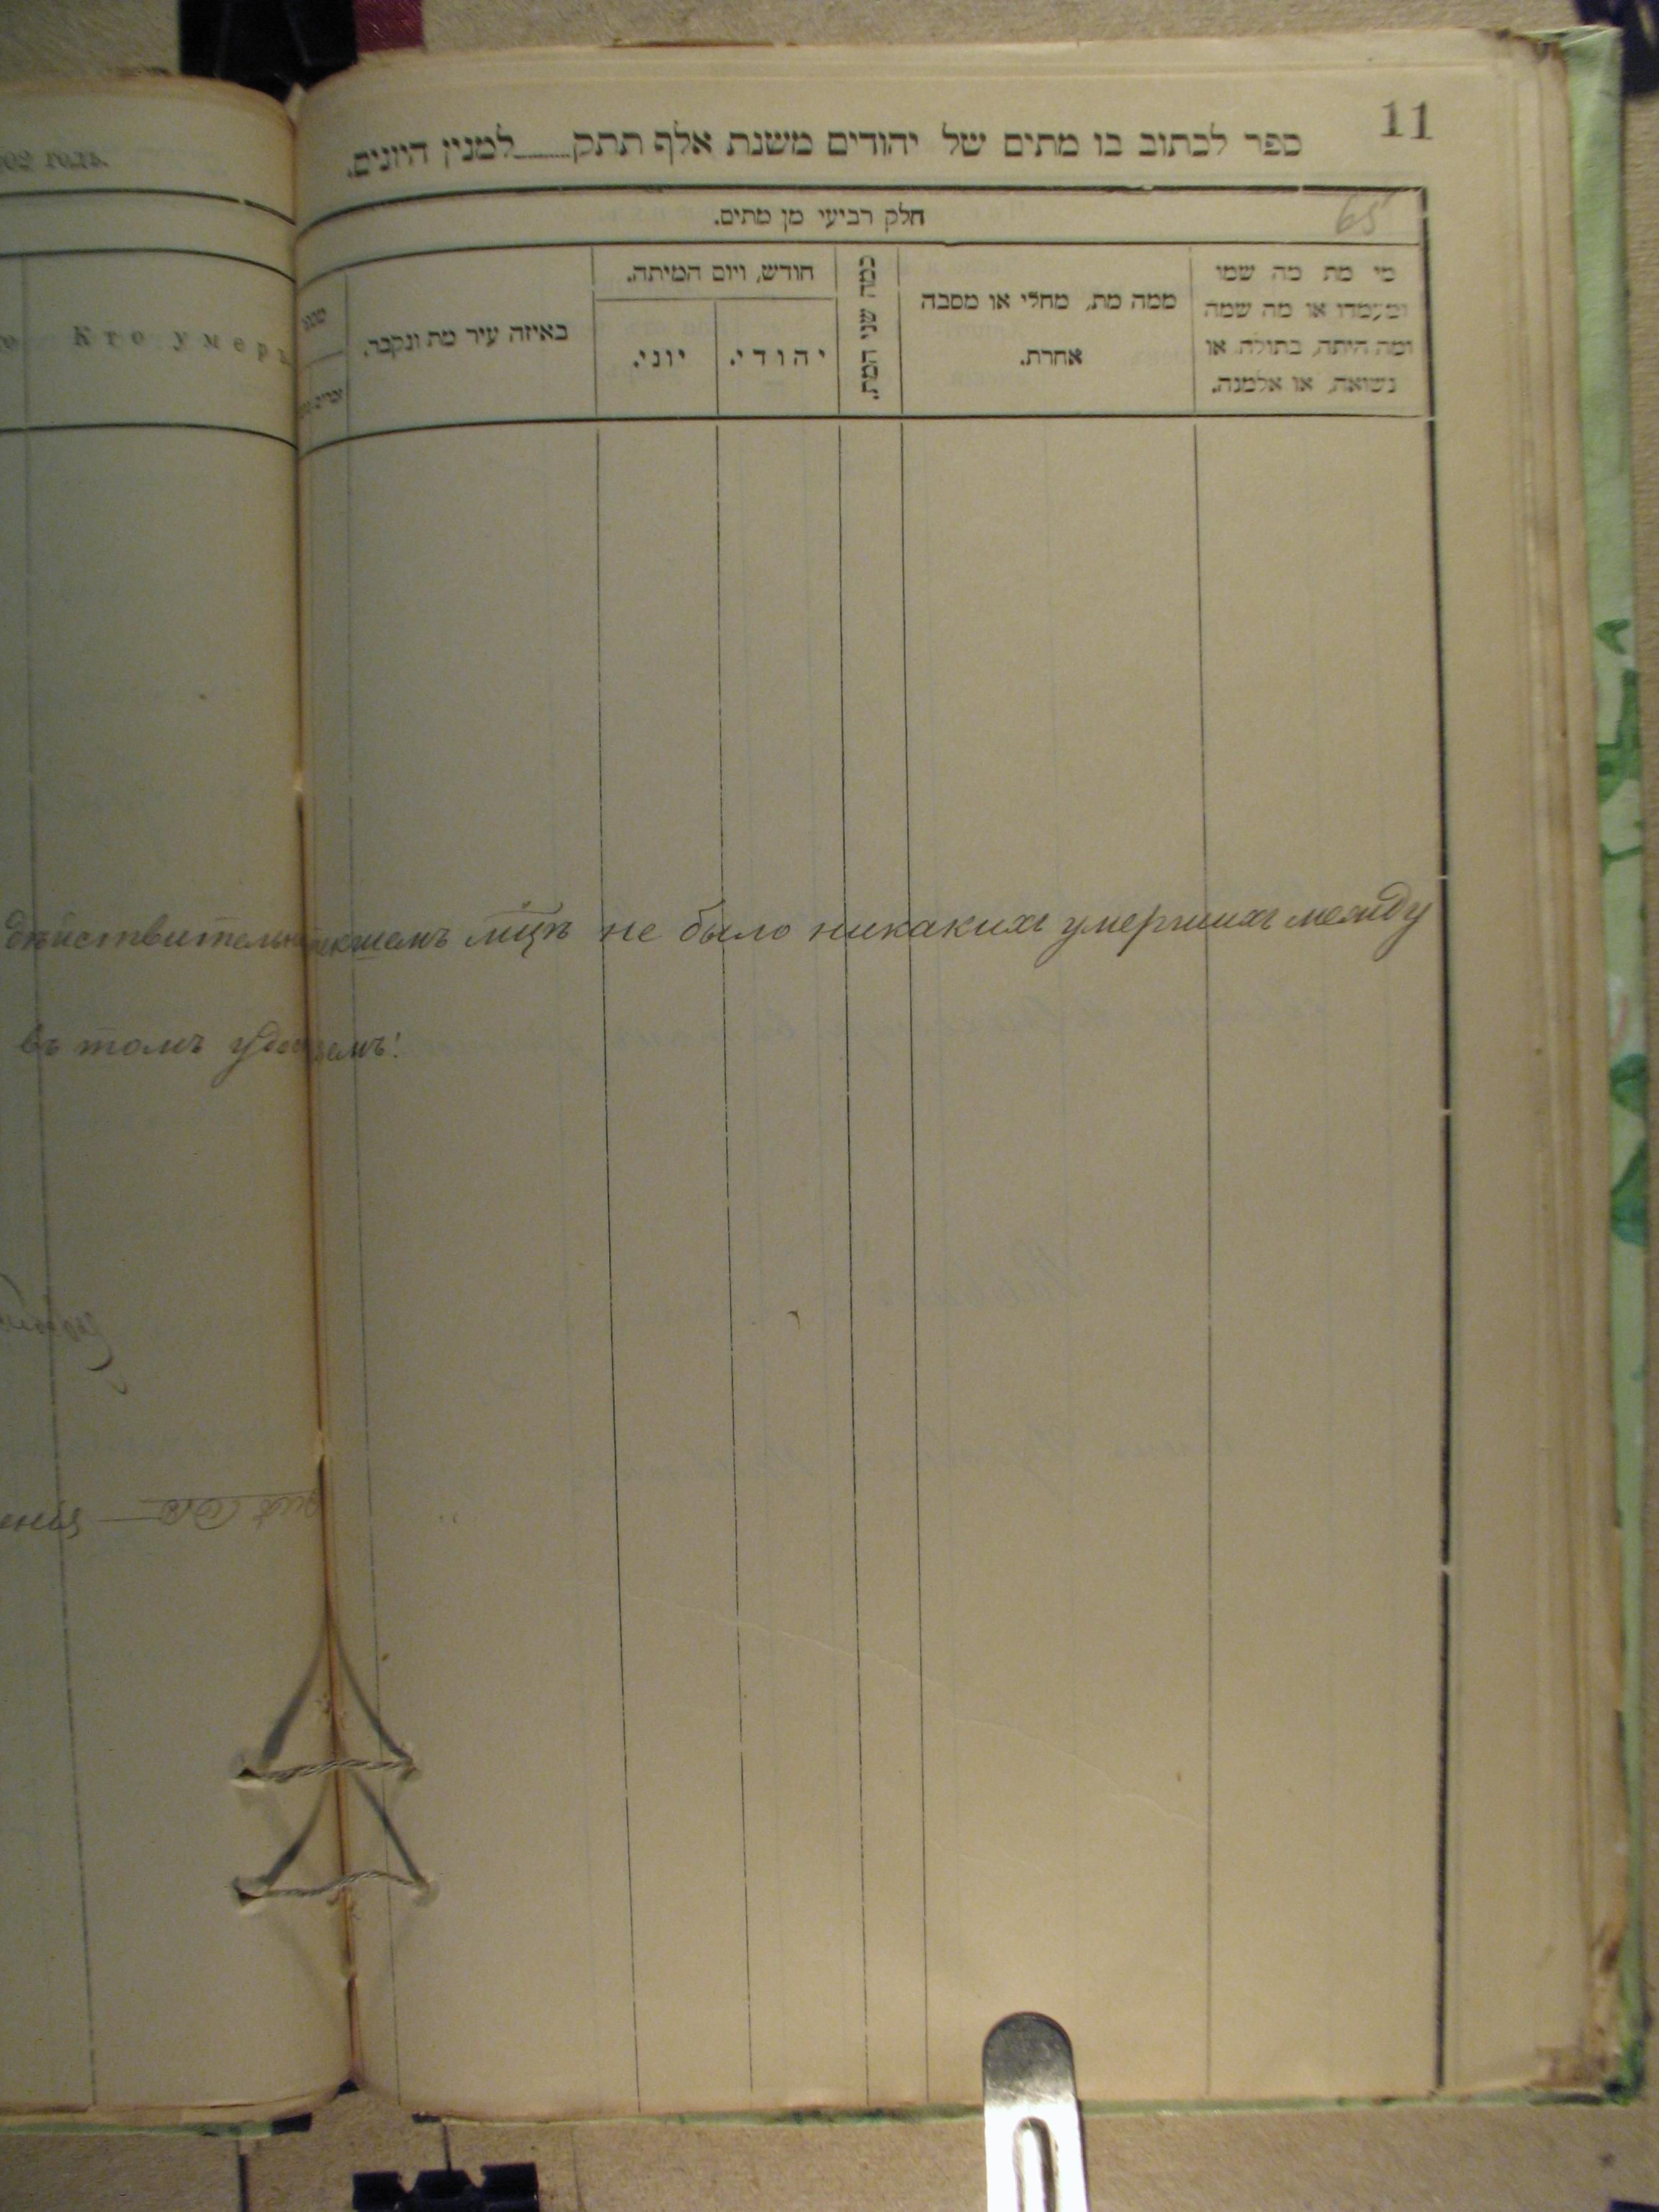 11
ספר לכתוב בו מתים של יהודים משנת אלף תתק למנין היונים.
65
חלק רביעי מן מתים.
מי מת מה שמו
ומעמדו או מה שמה
ומה היתה, בתולה או
נשואה, או אלמנה.
ממה מת, מחלי או מסבה
אחרת.
כמה שני המת.
חודש, ויום המיתה.
יהודי.
יוני.
באיזה עיר מת ונקבר.
902 годъ.
Кто умеръ
действительно
текшемъ мцѣ не было никакихъ умершихъ между
въ томъ